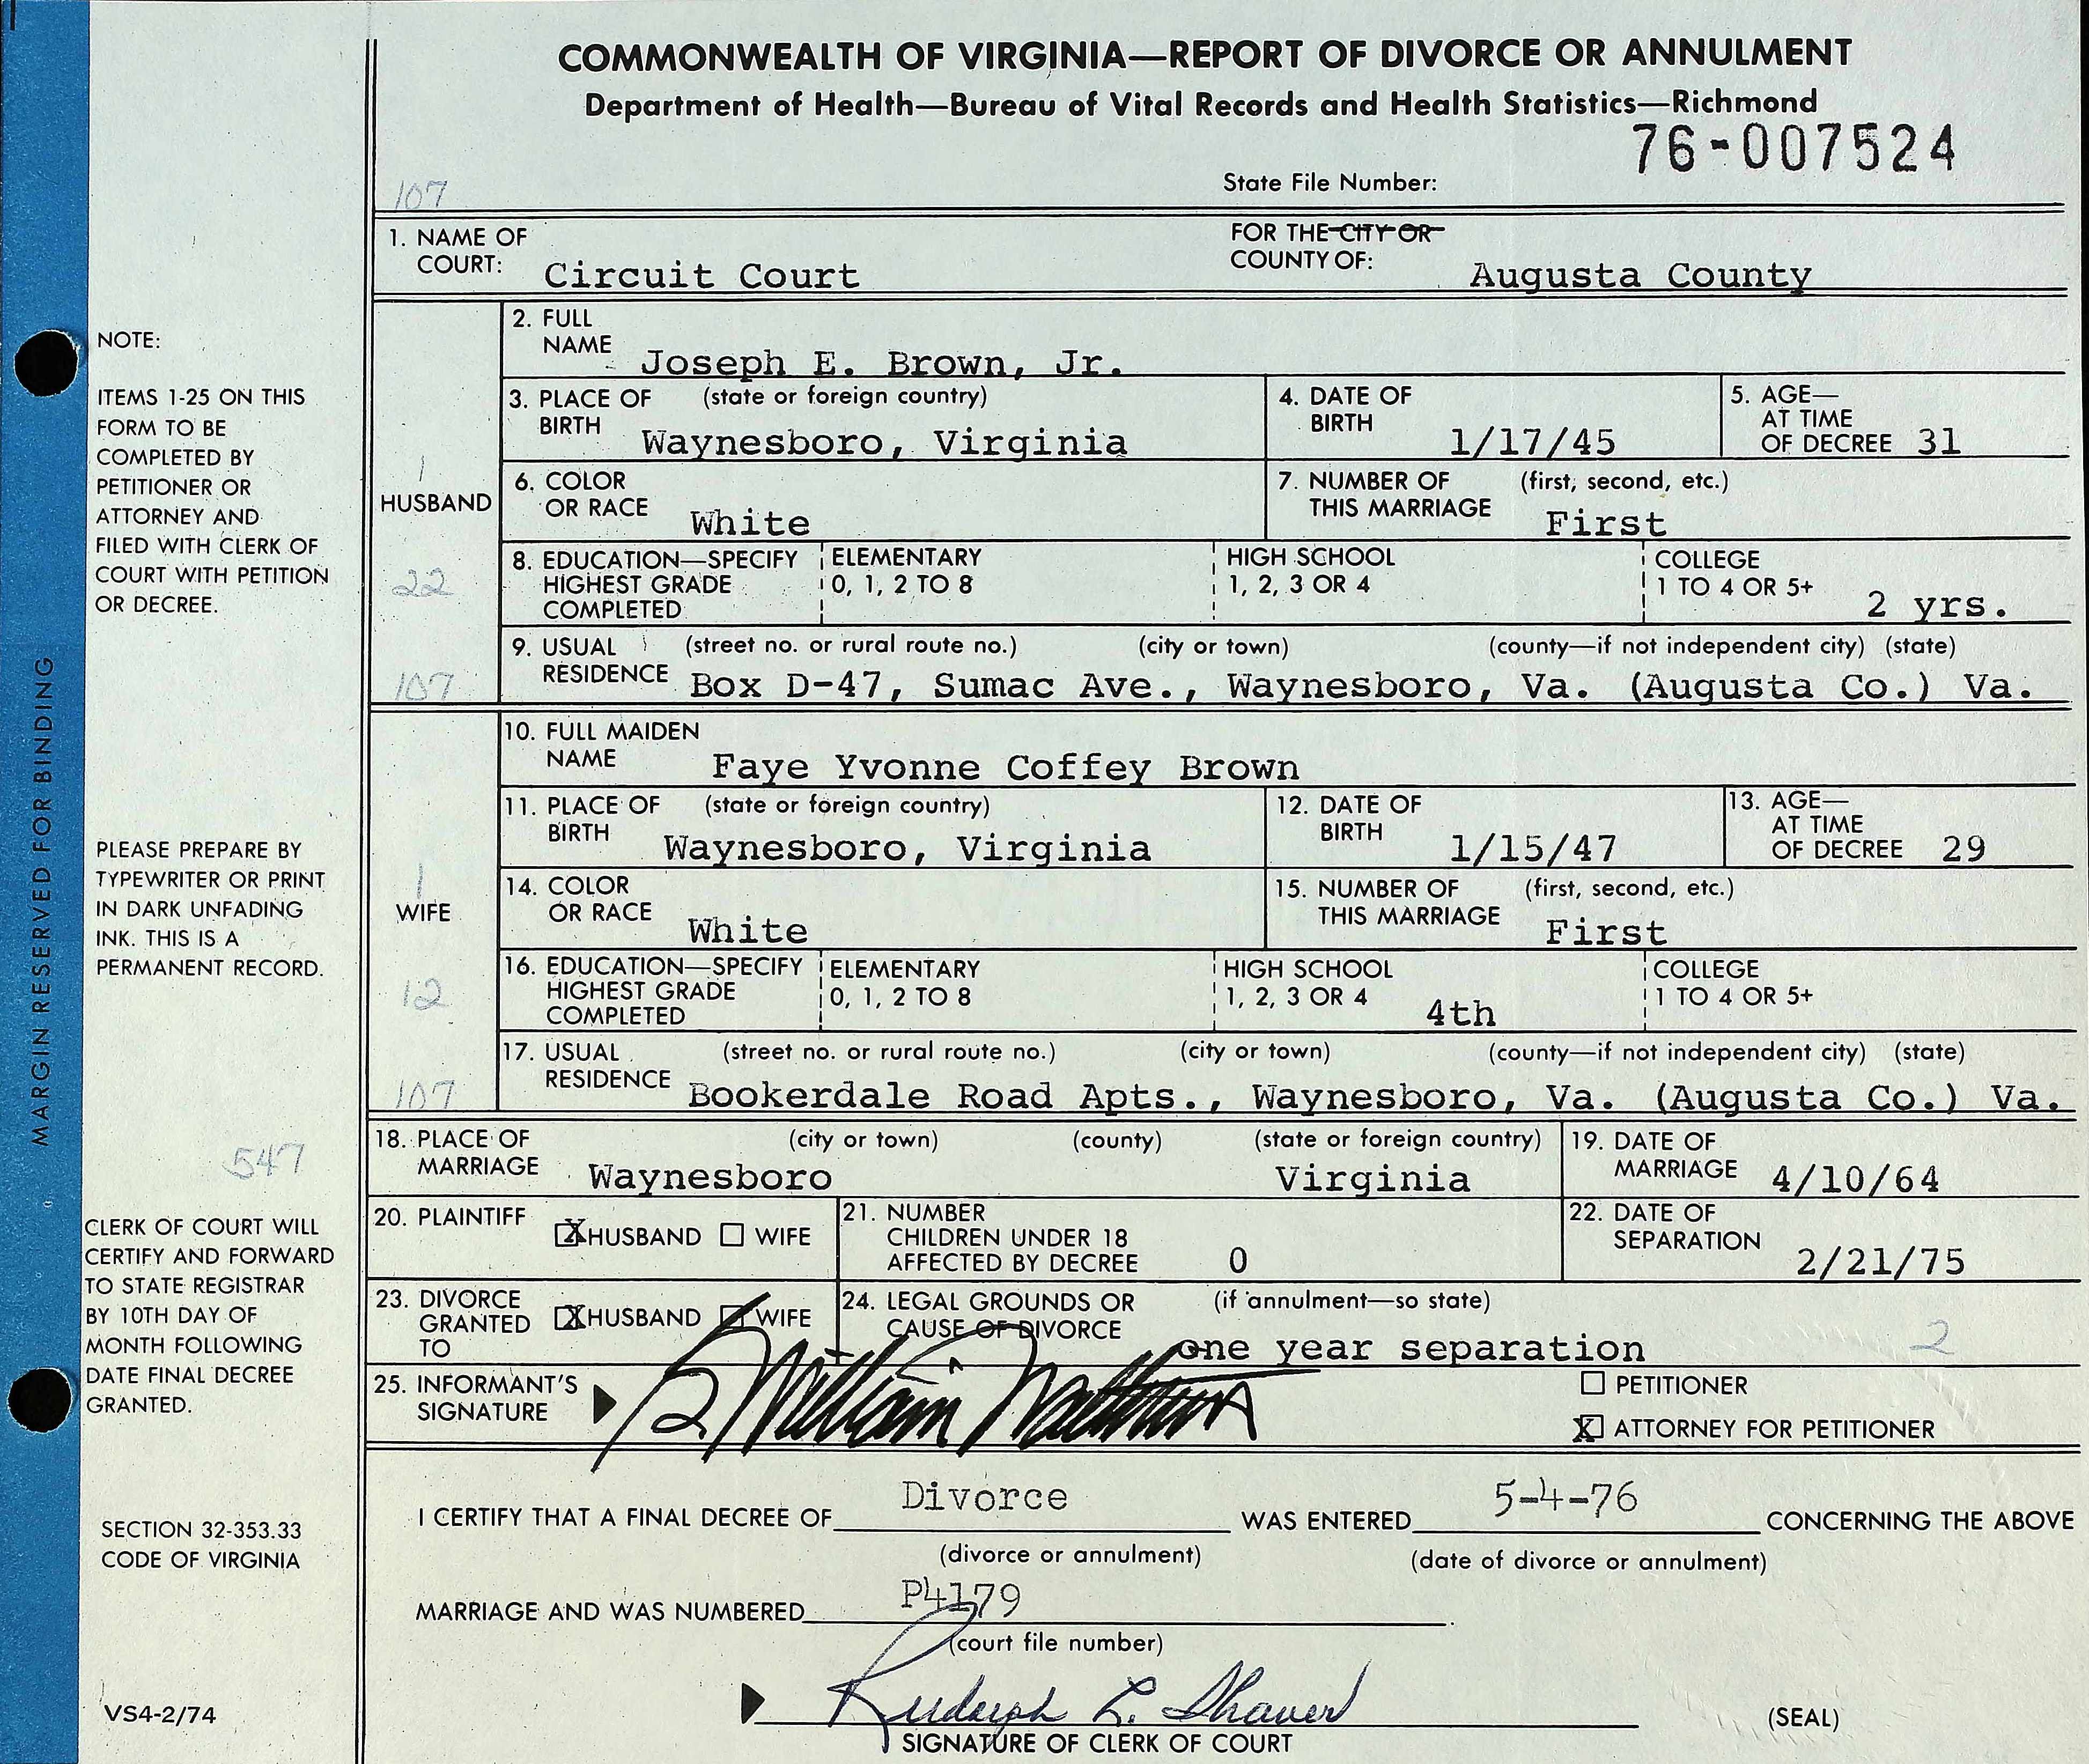 COMMONWEALTH OF VIRGINIA—REPORT OF DIVORCE OR ANNULMENT
Department of Health—Bureau of Vital Records and Health Statistics—Richmond
76-007524
State File Number:
107
1. NAME OF COURT: Circuit Court FOR THE CITY OR COUNTY OF: Augusta County
HUSBAND
1
22
107
2. FULL NAME Joseph E. Brown, Jr.
3. PLACE OF BIRTH (state or foreign country) Waynesboro, Virginia 4. DATE OF BIRTH 1/17/45 5. AGE—AT TIME OF DECREE 31
6. COLOR OR RACE White 7. NUMBER OF THIS MARRIAGE (first, second, etc.) First
8. EDUCATION—SPECIFY HIGHEST GRADE COMPLETED ELEMENTARY 0, 1, 2 TO 8 HIGH SCHOOL 1, 2, 3 OR 4 COLLEGE 1 TO 4 OR 5+ 2 yrs.
9. USUAL RESIDENCE (street no. or rural route no.) (city or town) (county—if not independent city) (state)
Box D-47, Sumac Ave., Waynesboro, Va. (Augusta Co.) Va.
WIFE
1
12
107
10. FULL MAIDEN NAME Faye Yvonne Coffey Brown
11. PLACE OF BIRTH (state or foreign country) Waynesboro, Virginia 12. DATE OF BIRTH 1/15/47 13. AGE—AT TIME OF DECREE 29
14. COLOR OR RACE White 15. NUMBER OF THIS MARRIAGE (first, second, etc.) First
16. EDUCATION—SPECIFY HIGHEST GRADE COMPLETED ELEMENTARY 0, 1, 2 TO 8 HIGH SCHOOL 1, 2, 3 OR 4 4th COLLEGE 1 TO 4 OR 5+
17. USUAL RESIDENCE (street no. or rural route no.) (city or town) (county—if not independent city) (state)
Bookerdale Road Apts., Waynesboro, Va. (Augusta Co.) Va.
547
18. PLACE OF MARRIAGE (city or town) (county) (state or foreign country) Waynesboro Virginia 19. DATE OF MARRIAGE 4/10/64
20. PLAINTIFF X HUSBAND WIFE 21. NUMBER CHILDREN UNDER 18 AFFECTED BY DECREE 0 22. DATE OF SEPARATION 2/21/75
23. DIVORCE GRANTED TO X HUSBAND WIFE 24. LEGAL GROUNDS OR CAUSE OF DIVORCE (if annulment—so state) one year separation 2
25. INFORMANT'S SIGNATURE William PETITIONER
X ATTORNEY FOR PETITIONER
I CERTIFY THAT A FINAL DECREE OF Divorce WAS ENTERED 5-4-76 CONCERNING THE ABOVE
(divorce or annulment) (date of divorce or annulment)
MARRIAGE AND WAS NUMBERED P4179
(court file number)
Rudolph L. Shaver
SIGNATURE OF CLERK OF COURT
(SEAL)
MARGIN RESERVED FOR BINDING
NOTE:
ITEMS 1-25 ON THIS
FORM TO BE
COMPLETED BY
PETITIONER OR
ATTORNEY AND
FILED WITH CLERK OF
COURT WITH PETITION
OR DECREE.
PLEASE PREPARE BY
TYPEWRITER OR PRINT
IN DARK UNFADING
INK. THIS IS A
PERMANENT RECORD.
CLERK OF COURT WILL
CERTIFY AND FORWARD
TO STATE REGISTRAR
BY 10TH DAY OF
MONTH FOLLOWING
DATE FINAL DECREE
GRANTED.
SECTION 32-353.33
CODE OF VIRGINIA
VS4-2/74